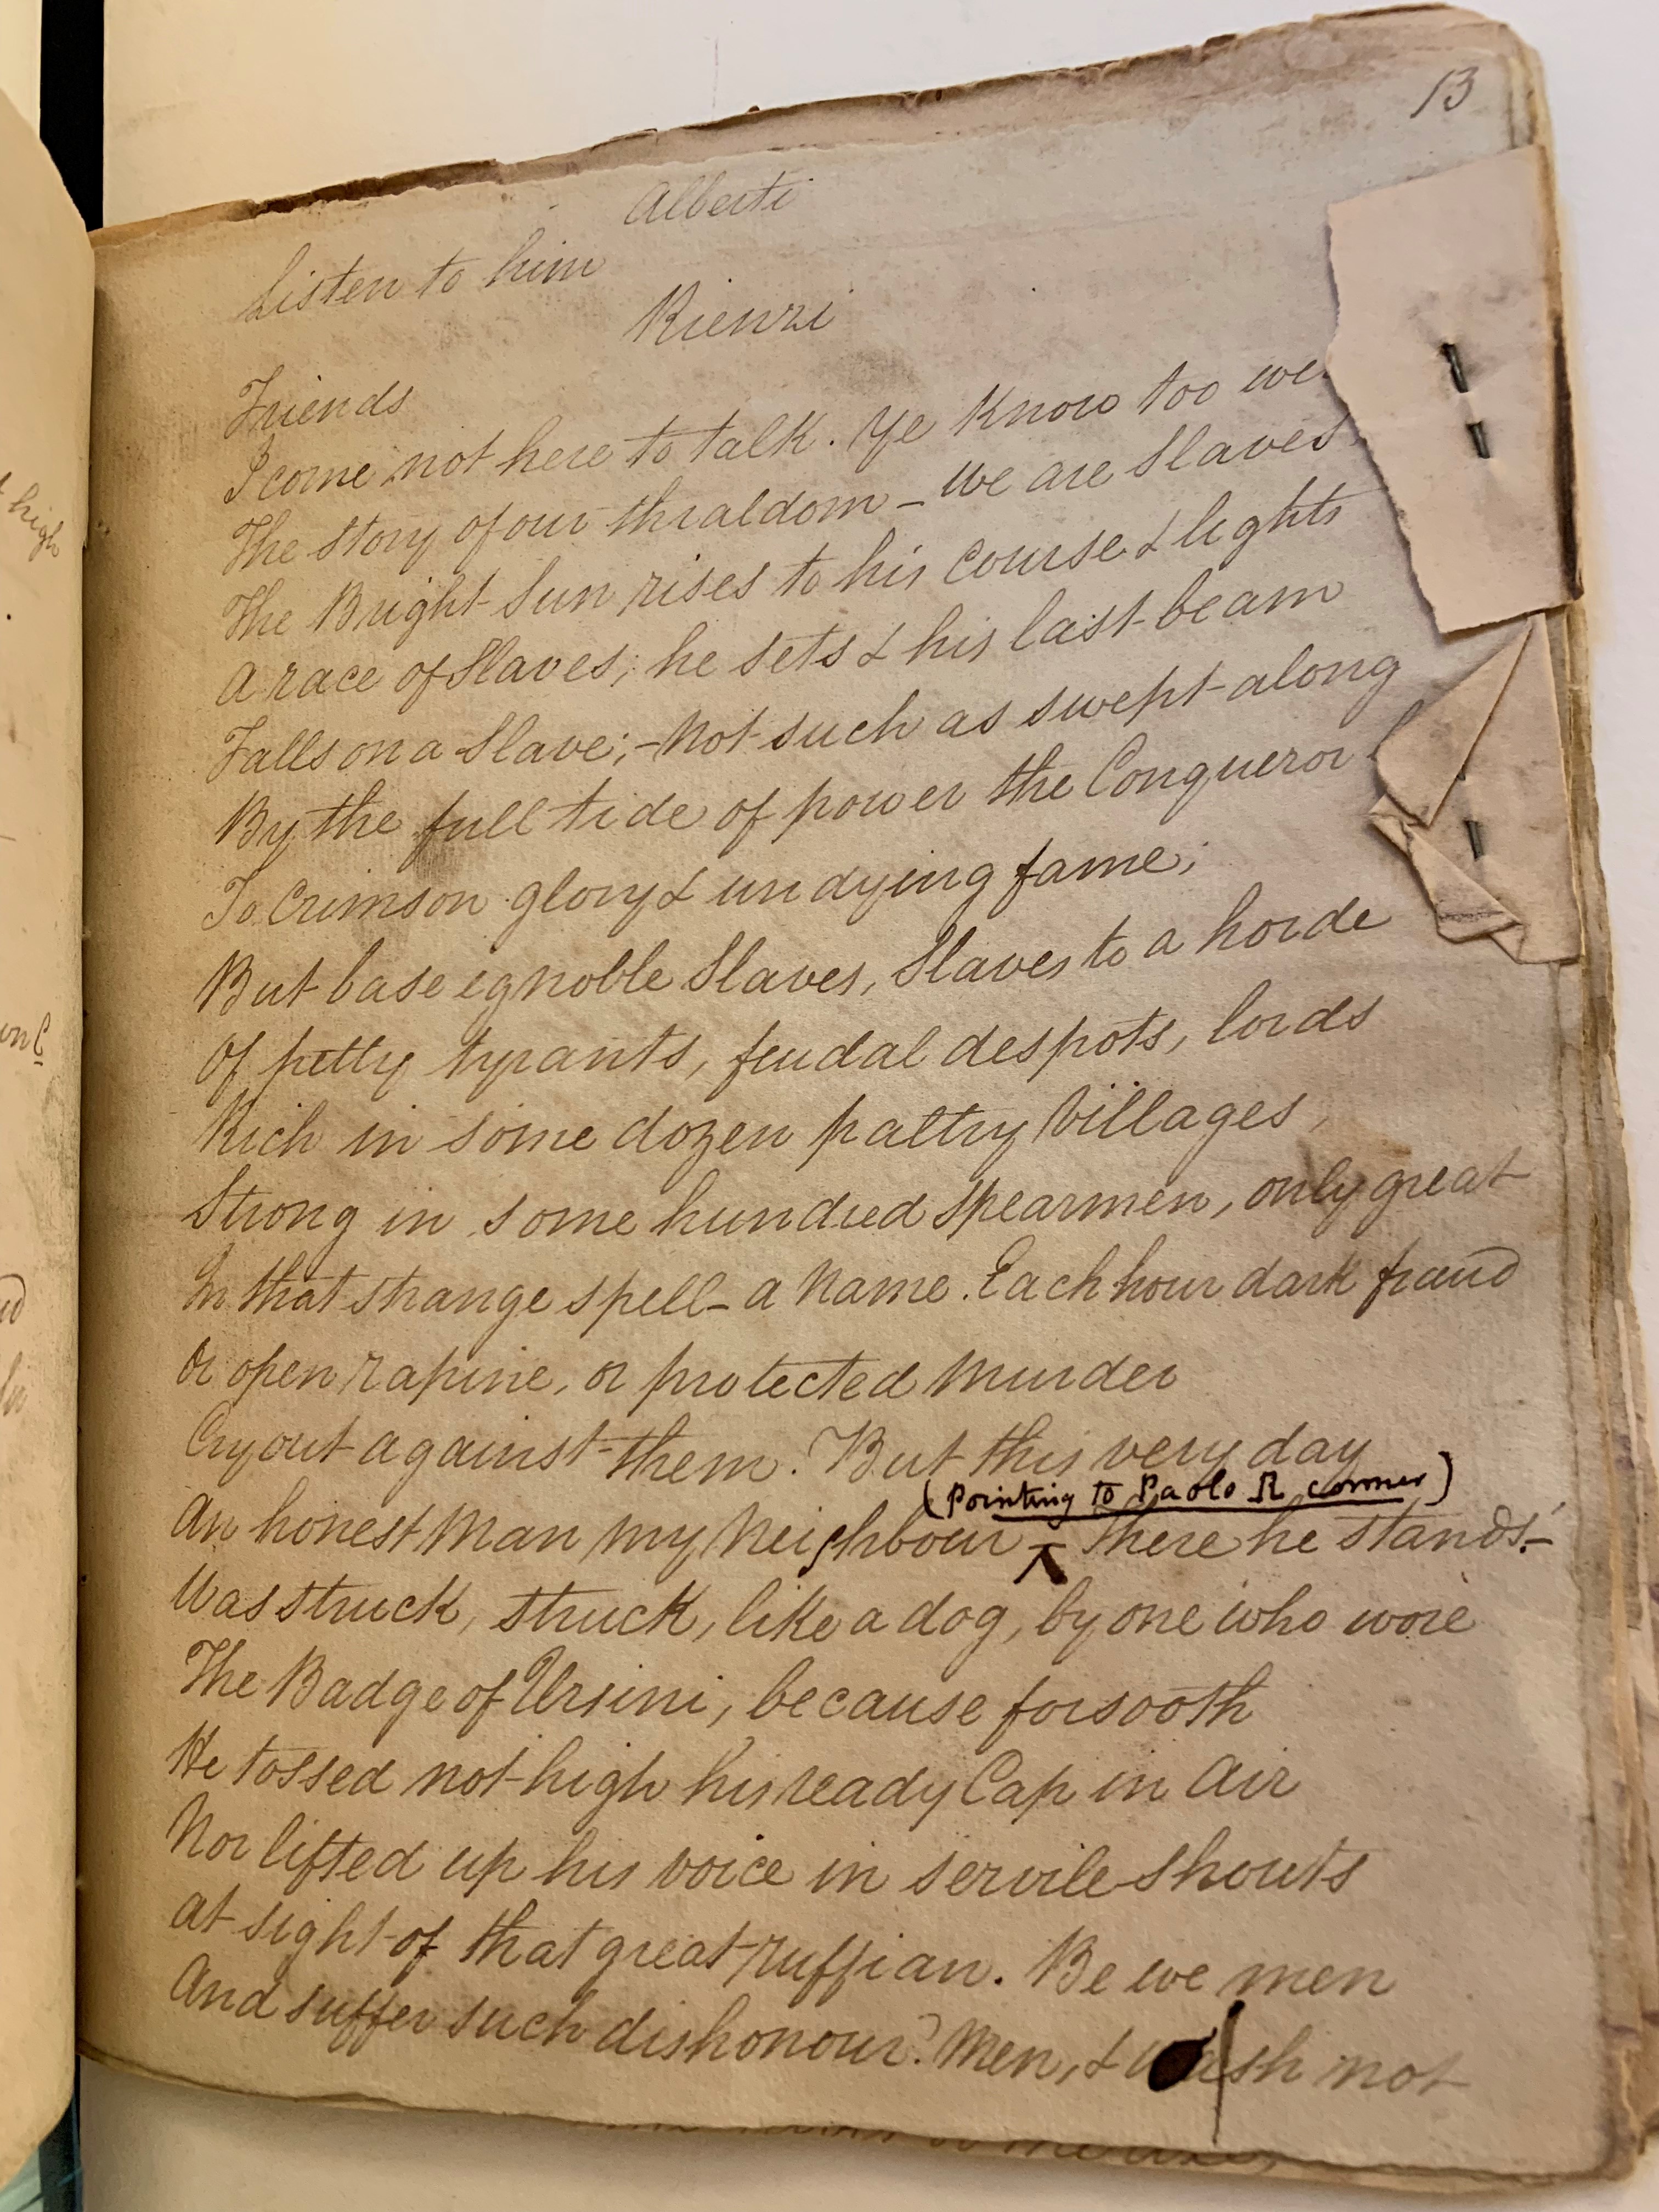 13
Alberti
Listen to him
Rienzi
Friends
I come not here to talk. Ye Know too we
The story of our thraldom – we are Slaves
The Bright Sun rises to his Course & lights
A race of Slaves; he sets & his last beam
Falls on a Slave; – Not such as swept along
By the full tide of power the Conqueror l
To Crimson glory & undying fame;
But base ignoble Slaves, Slaves to a horde
Of petty tyrants, feudal despots, lords
Rich in some dozen paltry Villages,
Strong in some hundred spearmen, only great
In that strange spell – a Name. Each hour dark fraud
Or open rapine, or protected Murder
Cry out against them. But this very day
(Pointing to Paolo R corner)
An honest Man my Neighbour – There he stands! –
Was struck, struck, like a dog, by one who wore
The Badge of Ursini, because forsooth
He tossed not high his ready Cap in Air
Nor lifted up his voice in servile shouts
At sight of that great ruffian. Be we men
And suffer such dishonour? Men, & wash not
high